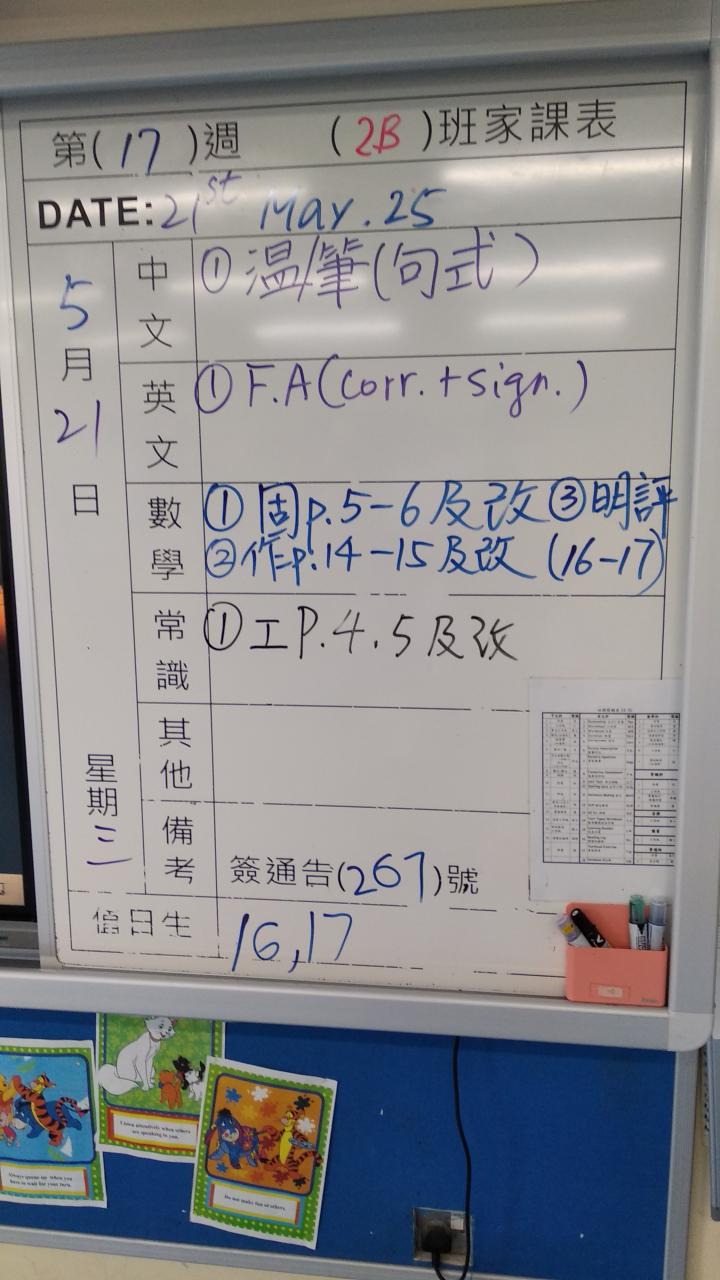 第(17)週 (2B)班家課表
DATE: 21st May. 25
5月21日
星期三
中文 ①温/筆(句式)
英文 ① F.A(corr.+sign.)
數學 ① 固p.5-6及改 ③明評
②作p.14-15及改 (16-17)
常識 ①工P.4.5及改
其他
備考 簽通告(267)號
值日生 16,17
Always queue up when you
have to wait for your turn.
Listen attentively when others
are speaking to you.
Do not make fun of others.